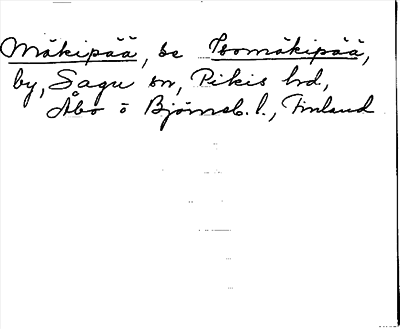 Mäkipää, se Isomäkipää,
by, Sagu sn, Pikis hd,
Åbo o Björneb. l., Finland